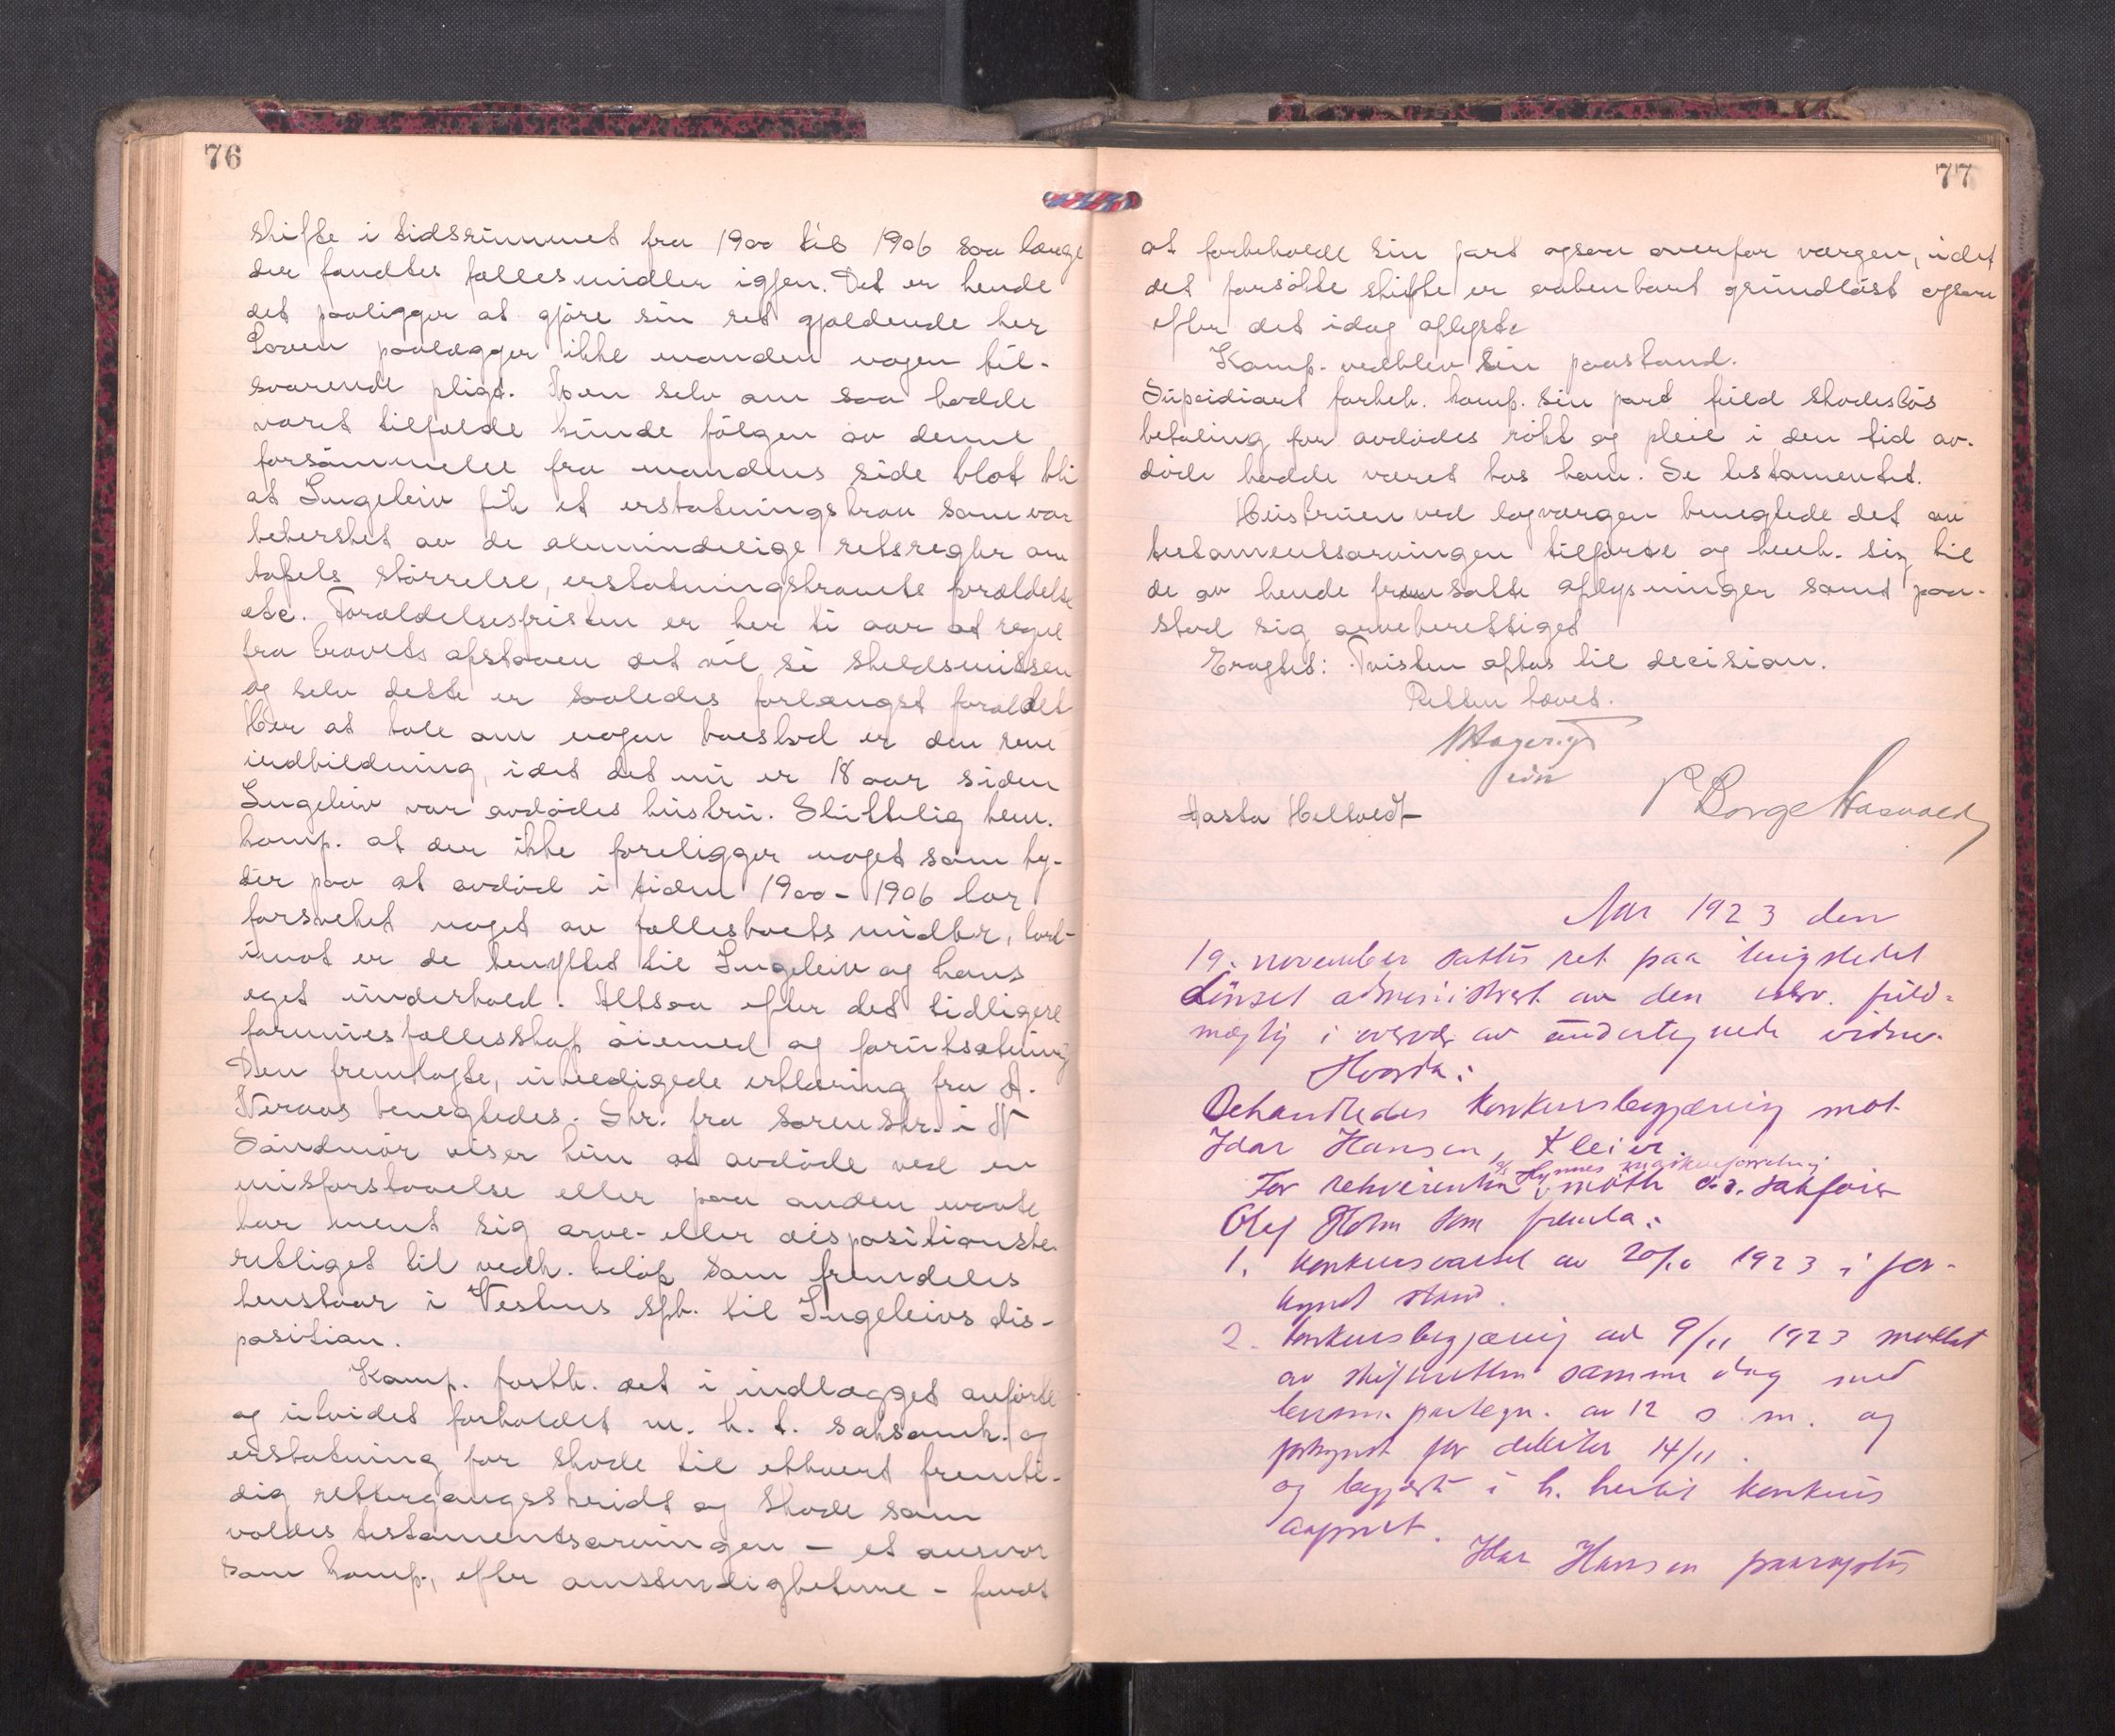 76
skifte i tidsrummet fra 1900 til 1906 saa længe
der fandtes fællesmidler igjen. Det er hende
det paaligger at gjöre sin ret gjældende her
Loven paalægger ikke manden nogen til-
svarende pligt. Men selv om saa hadde
været tilfælde kunde fölgen av denne
forsömmelse fra mandens side blot bli
at Ingeleiv fik et erstatningskrav som var
behersket av de almindelige retsregler om
tapets störrelse, erstatningskravets forældelse
etc. Forældelsesfristen er her ti aar at regne
fra kravets opstaaen det vil si skilsmissen
og selv dette er saaledes forlængst forældet
Her at tale om nogen boeslod er den rene
indbildning, idet det nu er 18 aar siden
Ingeleiv var avdödes hustru. Sluttelig bem.
komp. at der ikke foreligger noget som ty-
der paa at avdöd i tiden 1900-1906 har
forsvekket noget av fællesboets midler, tvert-
imot er de benyttet til Ingeleiv og hans
eget underhold. Altsaa efter det tidligere
formuesfællesskap öiemed og forutsætning
Den fremlagte, ubeedigede erklæring fra A.
Neraas benegtedes. Skr. fra sorenskr. i N
Söndmör viser kun at avdöde ved en
misforstaaelse eller paa anden maate
har ment sig arve- eller dispositionsbe-
rettiget til vedk. belöp som fremdeles
henstaar i Vestnes spb. til Ingeleivs dis-
position.
Komp. fasth. det i indlægget anförte
og utvidet forholdet m. h. t. saksomk. og
erstatning for skade til ethvert fremti-
dig rettergangsskridt og skade som
voldes testamentsarvingen - et ansvar
som komp., efter omstendigheterne - fandt
77
at forbeholde sin part ogsaa overfor vergen, idet
det forsökte skifte er aabenbart grundlöst ogsaa
efter det idag oplyste
Komp. vedblev sin paastand.
Supsidiært forbeh. komp. sin part fuld skadeslös
betaling for avdödes rökt og pleie i den tid av-
döde hadde været hos ham. Se testamentet.
Hustruen ved lagvergen benegtede det av
testamentsarvingen tilförte og henh. sig til
de av hende fremsatte oplysninger samt paa-
stod sig arveberettiget
Eragtet: Tvisten optas til decision.
Retten hævet.
Hasta Heltvedt
P Borge Aasvald
Aar 1923 den
19. november sattes ret paa tingstedet
Lönset administrert av den edsv. fuld-
mægtig i overvær av undertegnede vidner.
Hvorda:
Behandledes konkursbegjæring mot
Idar Hansen, Kleive.
For rekvirenten a/s Hynnes maskinforretning, mötte o.r. sakförer
Olej Holm som fremla:
1. konkursvarsel av 20/10 1923 i for-
kynt stand.
2. konkursbegjæring av 9/11 1923 mottat
av skifteretten samme dag med
beram. paategn. av 12 s. m. og
forkynt for debitor 14/11.
og begjærte i h. hertil konkurs
aapnet.
Idar Hansen paaropdes